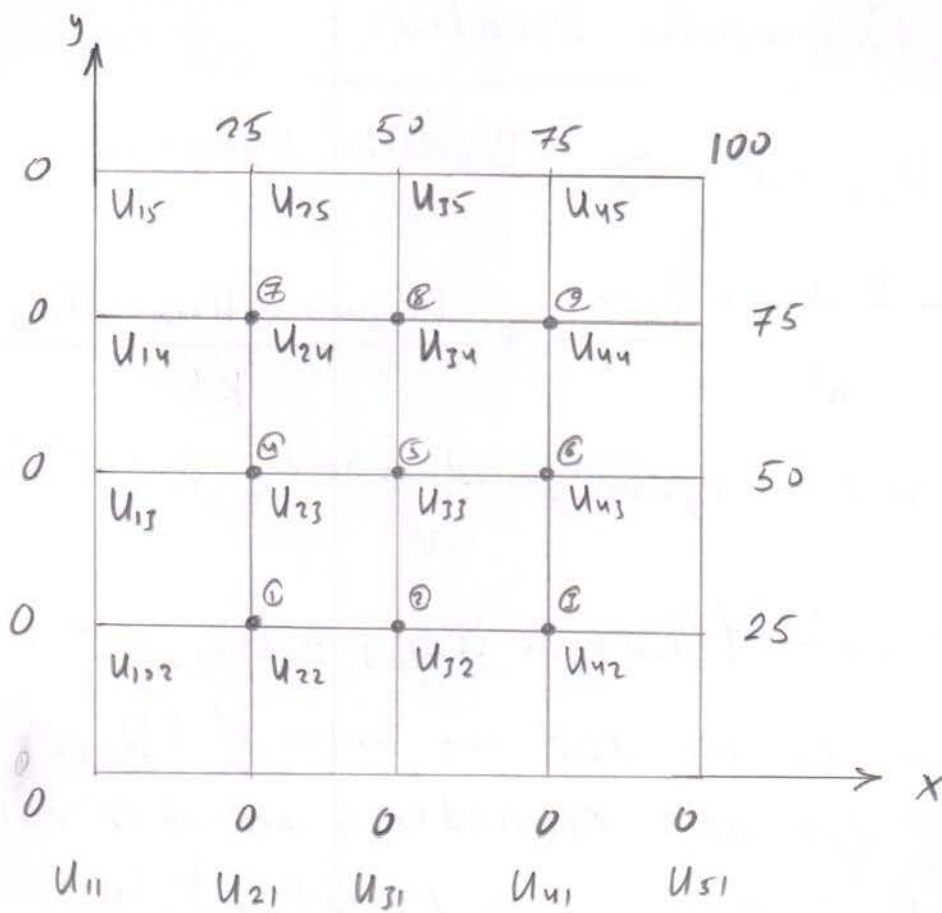 y
25 50 75 100
0
U15 U25 U35 U45
⑦ ⑧ ⑨
0 75
U14 U24 U34 U44
④ ⑤ ⑥
0 50
U13 U23 U33 U43
① ② ③
0 25
U1,2 U22 U32 U42
0
x
0 0 0 0 0
U11 U21 U31 U41 U51